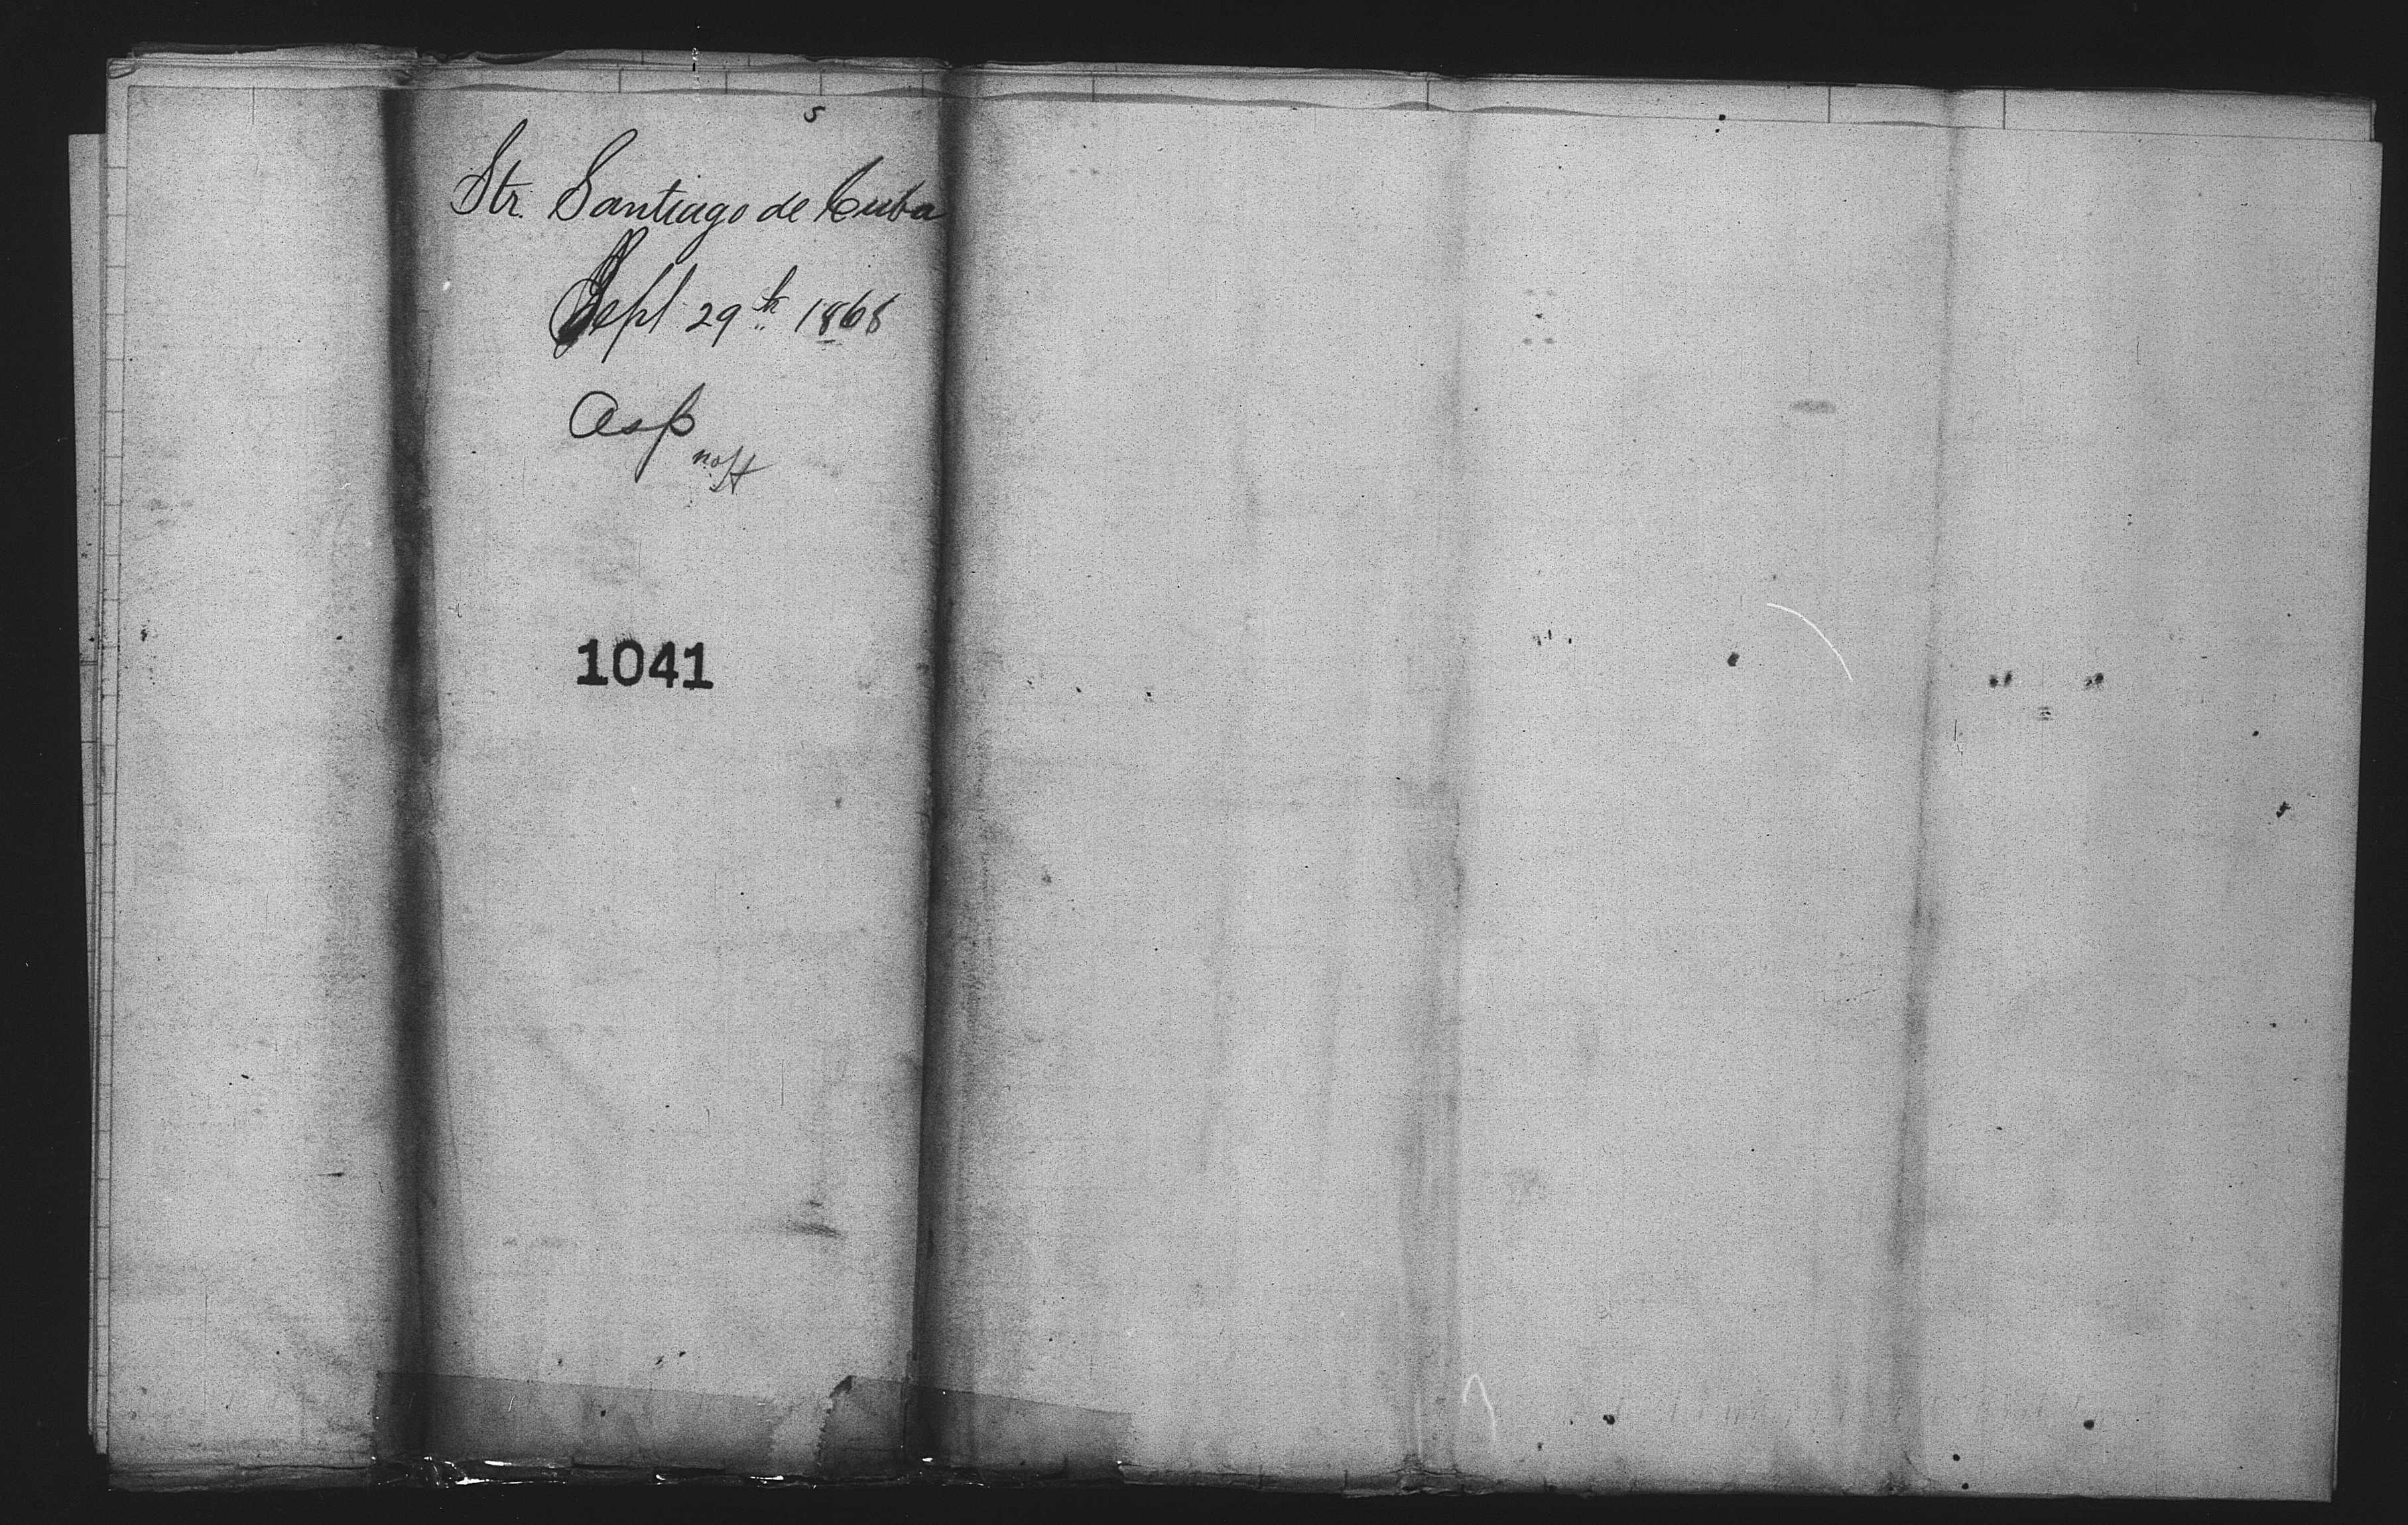 s
Str. Santiago de Cuba
Sept 29th 1868
Asp
1041